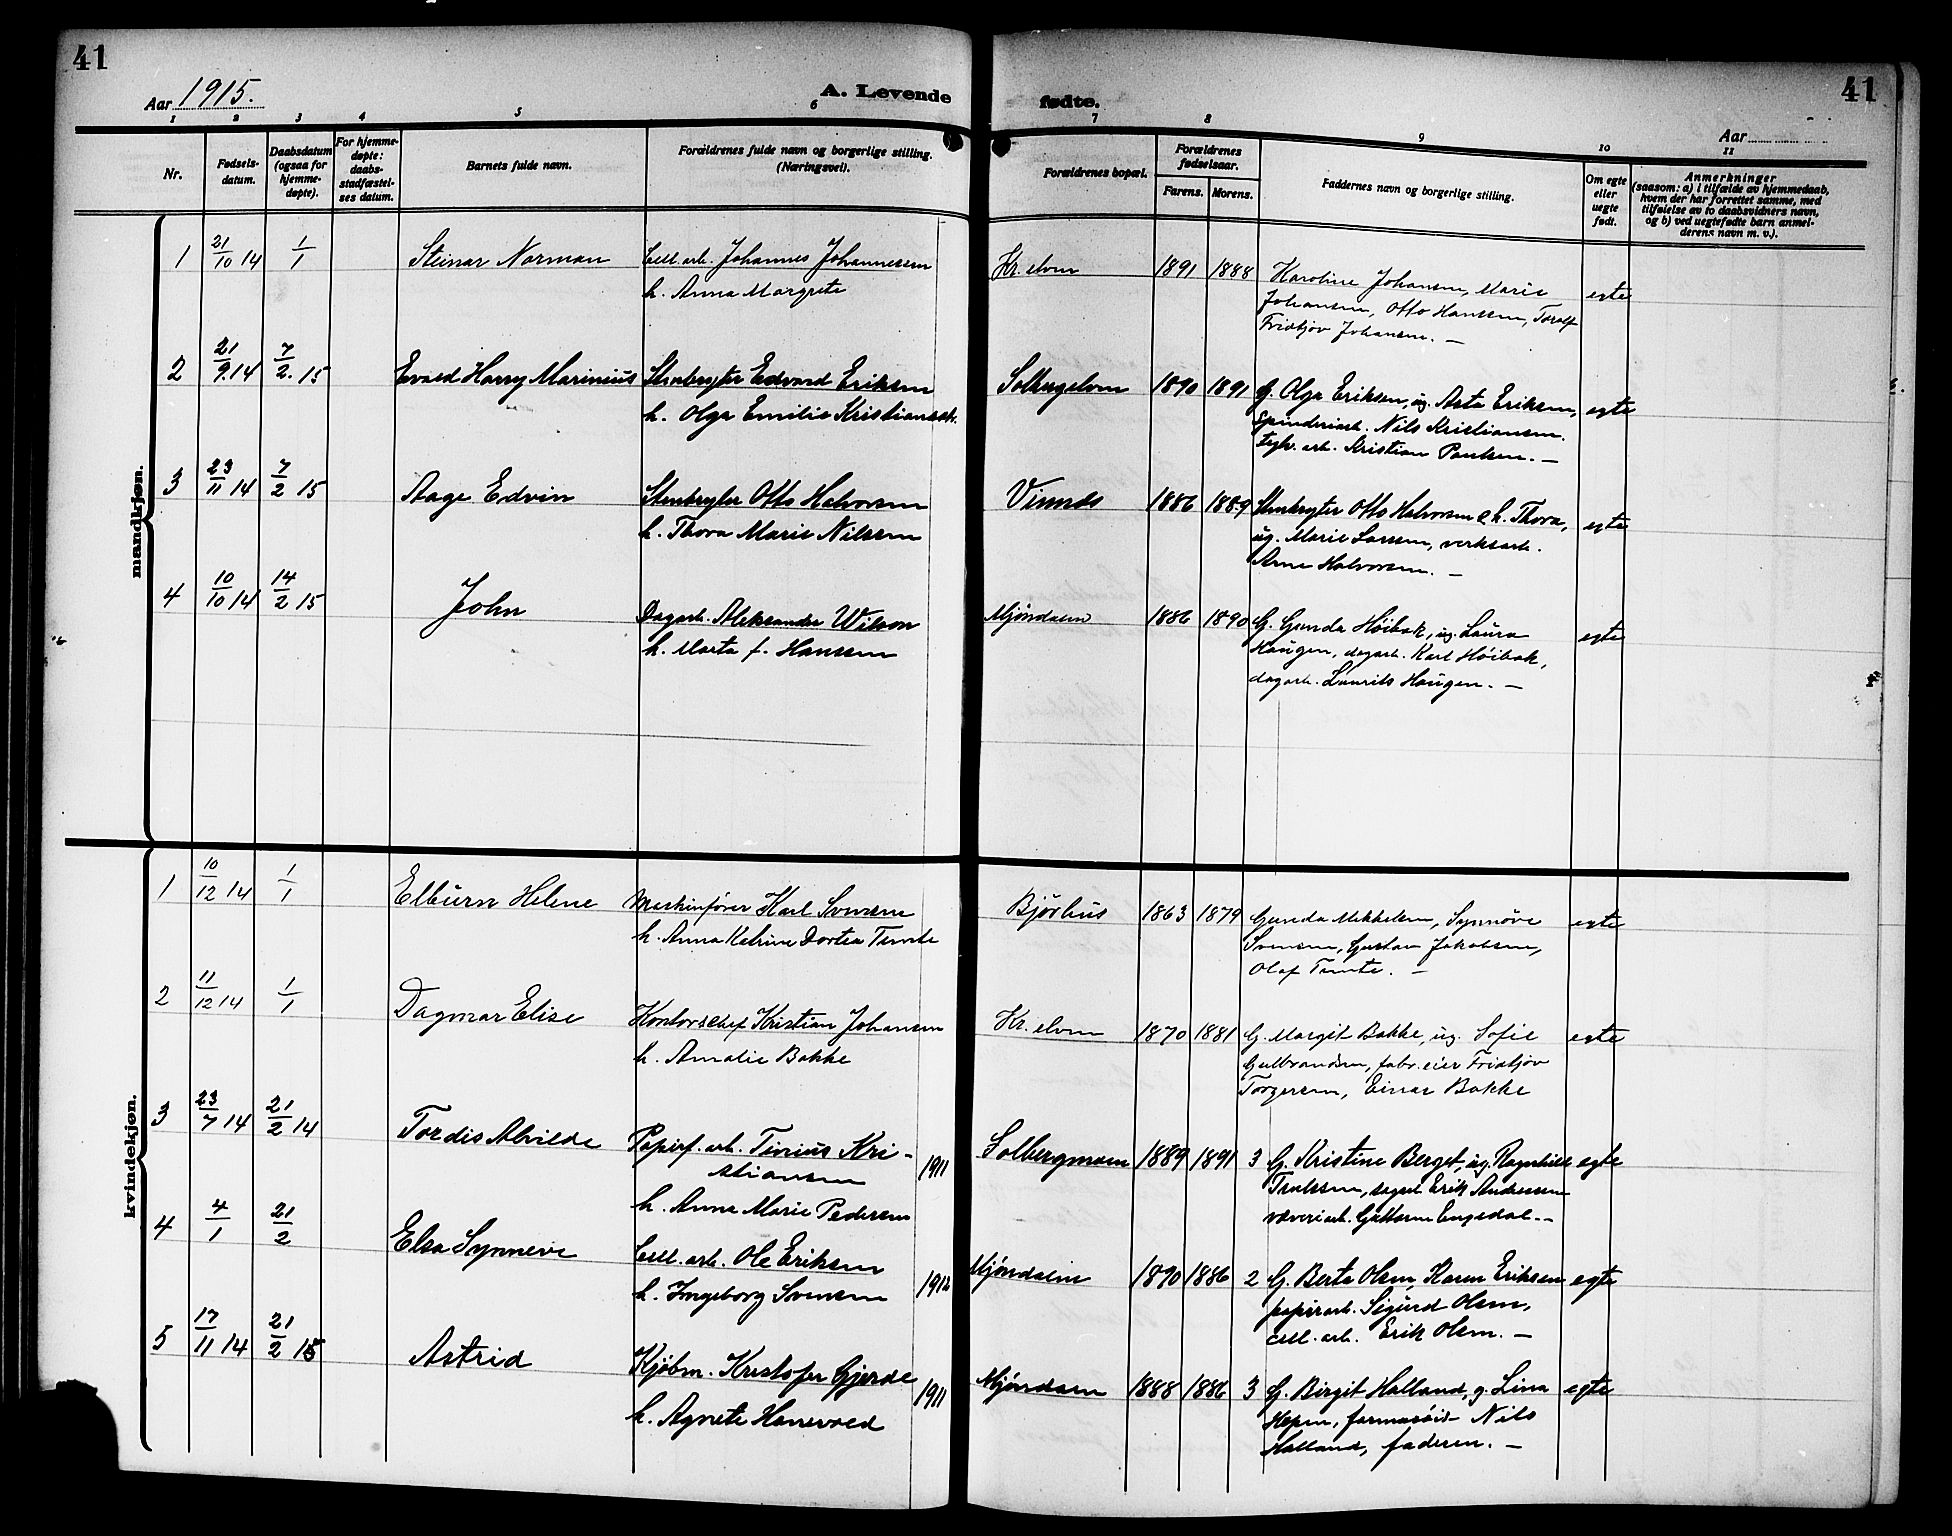 41
Aar 1915.
A. Levende
fødte.
41
Aar
1 2 3 4 5 6 7 8 9 10 11
Nr.
Fødsels-
datum.
Daabsdatum
(ogsaa for
hjemme-
døpte).
For hjemme-
døpte:
daabs-
stadfæstel-
ses datum.
Barnets fulde navn.
Forældrenes fulde navn og borgerlige stilling.
(Næringsvei).
Forældrenes bopæl.
Forældrenes
fødselsaar.
Farens. Morens.
Faddernes navn og borgerlige stilling.
Om egte
eller
uegte
født.
Anmerkninger
(saasom: a) i tilfælde av hjemmedaab,
hvem der har forrettet samme, med
tilføielse av to daabsvidners navn,
og b) ved uegtefødte barn anmel-
derens navn m. v.).
mandkjøn.
1 21/10 14 1/1 Steinar Norman Cell. arb. Johannes Johannesen Kr. elven 1891 1888 Karoline Johansen, Marie egte
h. Anna Margrete Johansen, Otto Hansen, Toralf
Fridtjov Johansen. —
2 21/9 14 7/2. 15 Evald Harry Marinius Stenbryter Edvard Eriksen Solbergelven 1890 1891 G. Olga Eriksen, ug. Asta Eriksen, egte
h. Olga Emilie Kristiansdt. Spinderiarb. Nils Kristiansen.
arb. Kristian Paulsen. —
3 23/11 14 7/2 15 Aage Edvin Stenbryter Otto Halvorsen 1886 1889 Stenbryter Otto Halvorsen & h. Thora, egte
h. Thora Marie Nilssen ug. Marie Larsen, verksarb.
Arne Halvorsen. —
4 10/10 14 14/2 15 John Dagarb. Aleksander Wilson Mjøndalen 1886 1890 G. Gunda Høibak, ug. Laura egte
h. Marta f. Hanssen Haugen, dagarb. Karl Høibak,
dagarb. Laurits Haugen. —
kvindekjøn.
1 10/12 14 1/1 Elburn Helene Maskinfører Karl Svensen Bjørhus 1863 1879 Gunda Mikkelsen, Synnøve egte
h. Anna Katrine Dortea Tomte Svensen, Gustav Jakobsen,
Olaf Tomte. —
2 11/12 14 1/1 Dagmar Elise Kontorschef Kristian Johansen Kr. elven 1870 1881 G. Margit Bakke, ug. Sofie egte
h. Amalie Bakke Gulbrandsen, fabr. eier Fridtjov
Torgersen, Einar Bakke
3 23/7 14 21/2 14 Tordis Alvilde Papirf. arb. Tinius Kri- 1911 Solbergmoen 1889 1891 3 G. Kristine Berget, ug. Ragnhild egte
stiansen Trulssen, dagarb. Erik Andressen
h. Anna Marie Pedersen væveriarb. Guttorm Engedal. —
4 4/1 21/2 Elsa Synneve Cell. arb. Ole Eriksen 1912 Mjøndalen 1890 1886 2 G. Berta Olsen, Karen Eriksen egte
h. Ingeborg Svensen papirarb. Sigurd Olsen,
cell. arb. Erik Olsen. —
5 17/11 14 21/2 15 Astrid Kjøbm. Kristofer Gjerde 1911 Mjøndalen 1888 1886 3 G. Birgit Halland, g. Lina egte
h. Agnete Hanevold farmasøit Nils
Halland, faderen. —